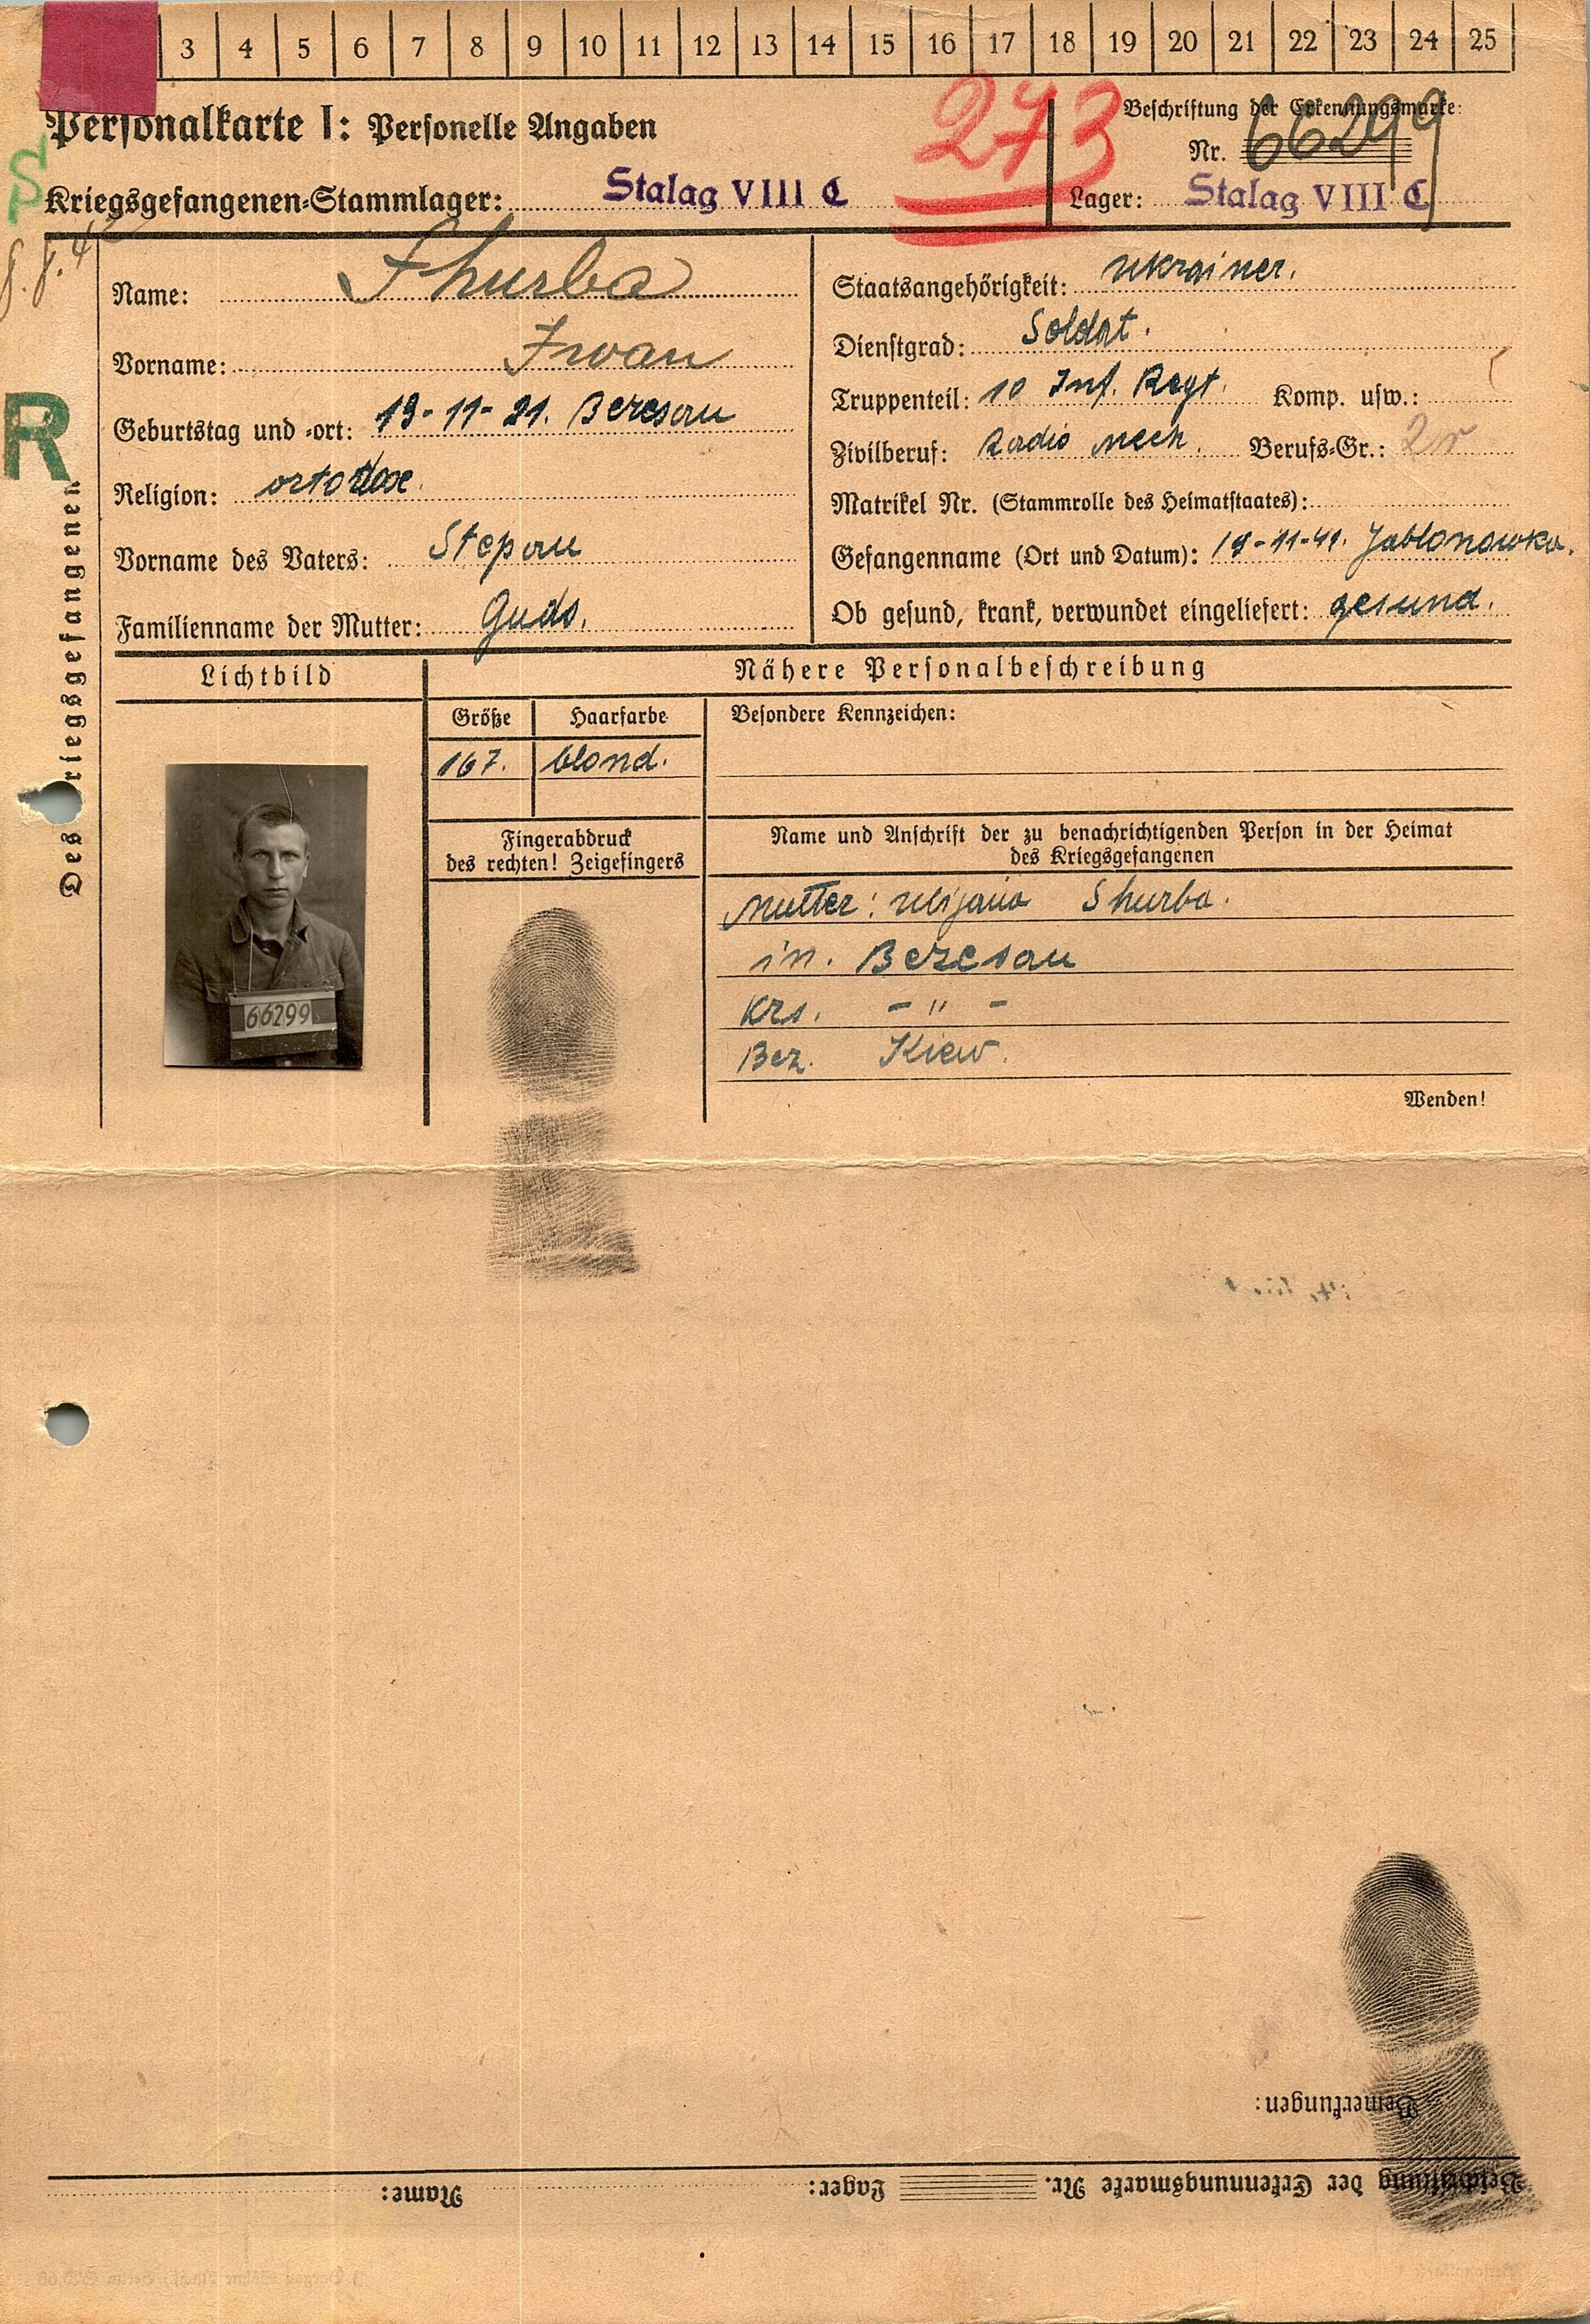 3 4 5 6 7 8 9 10 11 12 13 14 15 16 17 18 19 20 21 22 23 24 25
Personalkarte I: Personelle Angaben
273
Beschriftung der Erkennungsmarke:
Nr. 66299
Kriegsgefangenen-Stammlager: Stalag VIII C
Lager: Stalag VIII C
S
R
Des Kriegsgefangenen
Name: Shurba
Vorname: Iwan
Geburtstag und -ort: 19-11-21. Beresan
Religion: ortodox
Vorname des Vaters: Stepan
Familienname der Mutter: Guds.
Staatsangehörigkeit: Ukrainer.
Dienstgrad: Soldat.
Truppenteil: 10 Inf. Regt. Komp. usw.:
Zivilberuf: Radio Mech. Berufs-Gr.: 2r
Matrikel Nr. (Stammrolle des Heimatstaates):
Gefangenname (Ort und Datum): 19-11-41. Jablonowka.
Ob gesund, krank, verwundet eingeliefert: gesund.
Lichtbild
Nähere Personalbeschreibung
Größe Haarfarbe Besondere Kennzeichen:
167. blond.
Fingerabdruck
des rechten! Zeigefingers
Name und Anschrift der zu benachrichtigenden Person in der Heimat
des Kriegsgefangenen
Mutter: Ulijana Shurba.
in. Beresan
Krs. - " -
Bez. Kiew.
66299
Wenden!
Bemerkungen:
Beschriftung der Erkennungsmarke Nr. Lager: Name: